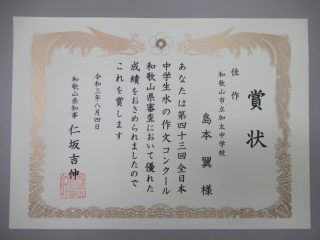 賞状
佳作
和歌山市立加太中学校
島本 翼 様
あなたは第四十三回全日本
中学生水の作文コンクール
和歌山県審査において優れた
成績をおさめられましたので
これを賞します
令和三年八月四日
和歌山県知事 仁坂吉伸